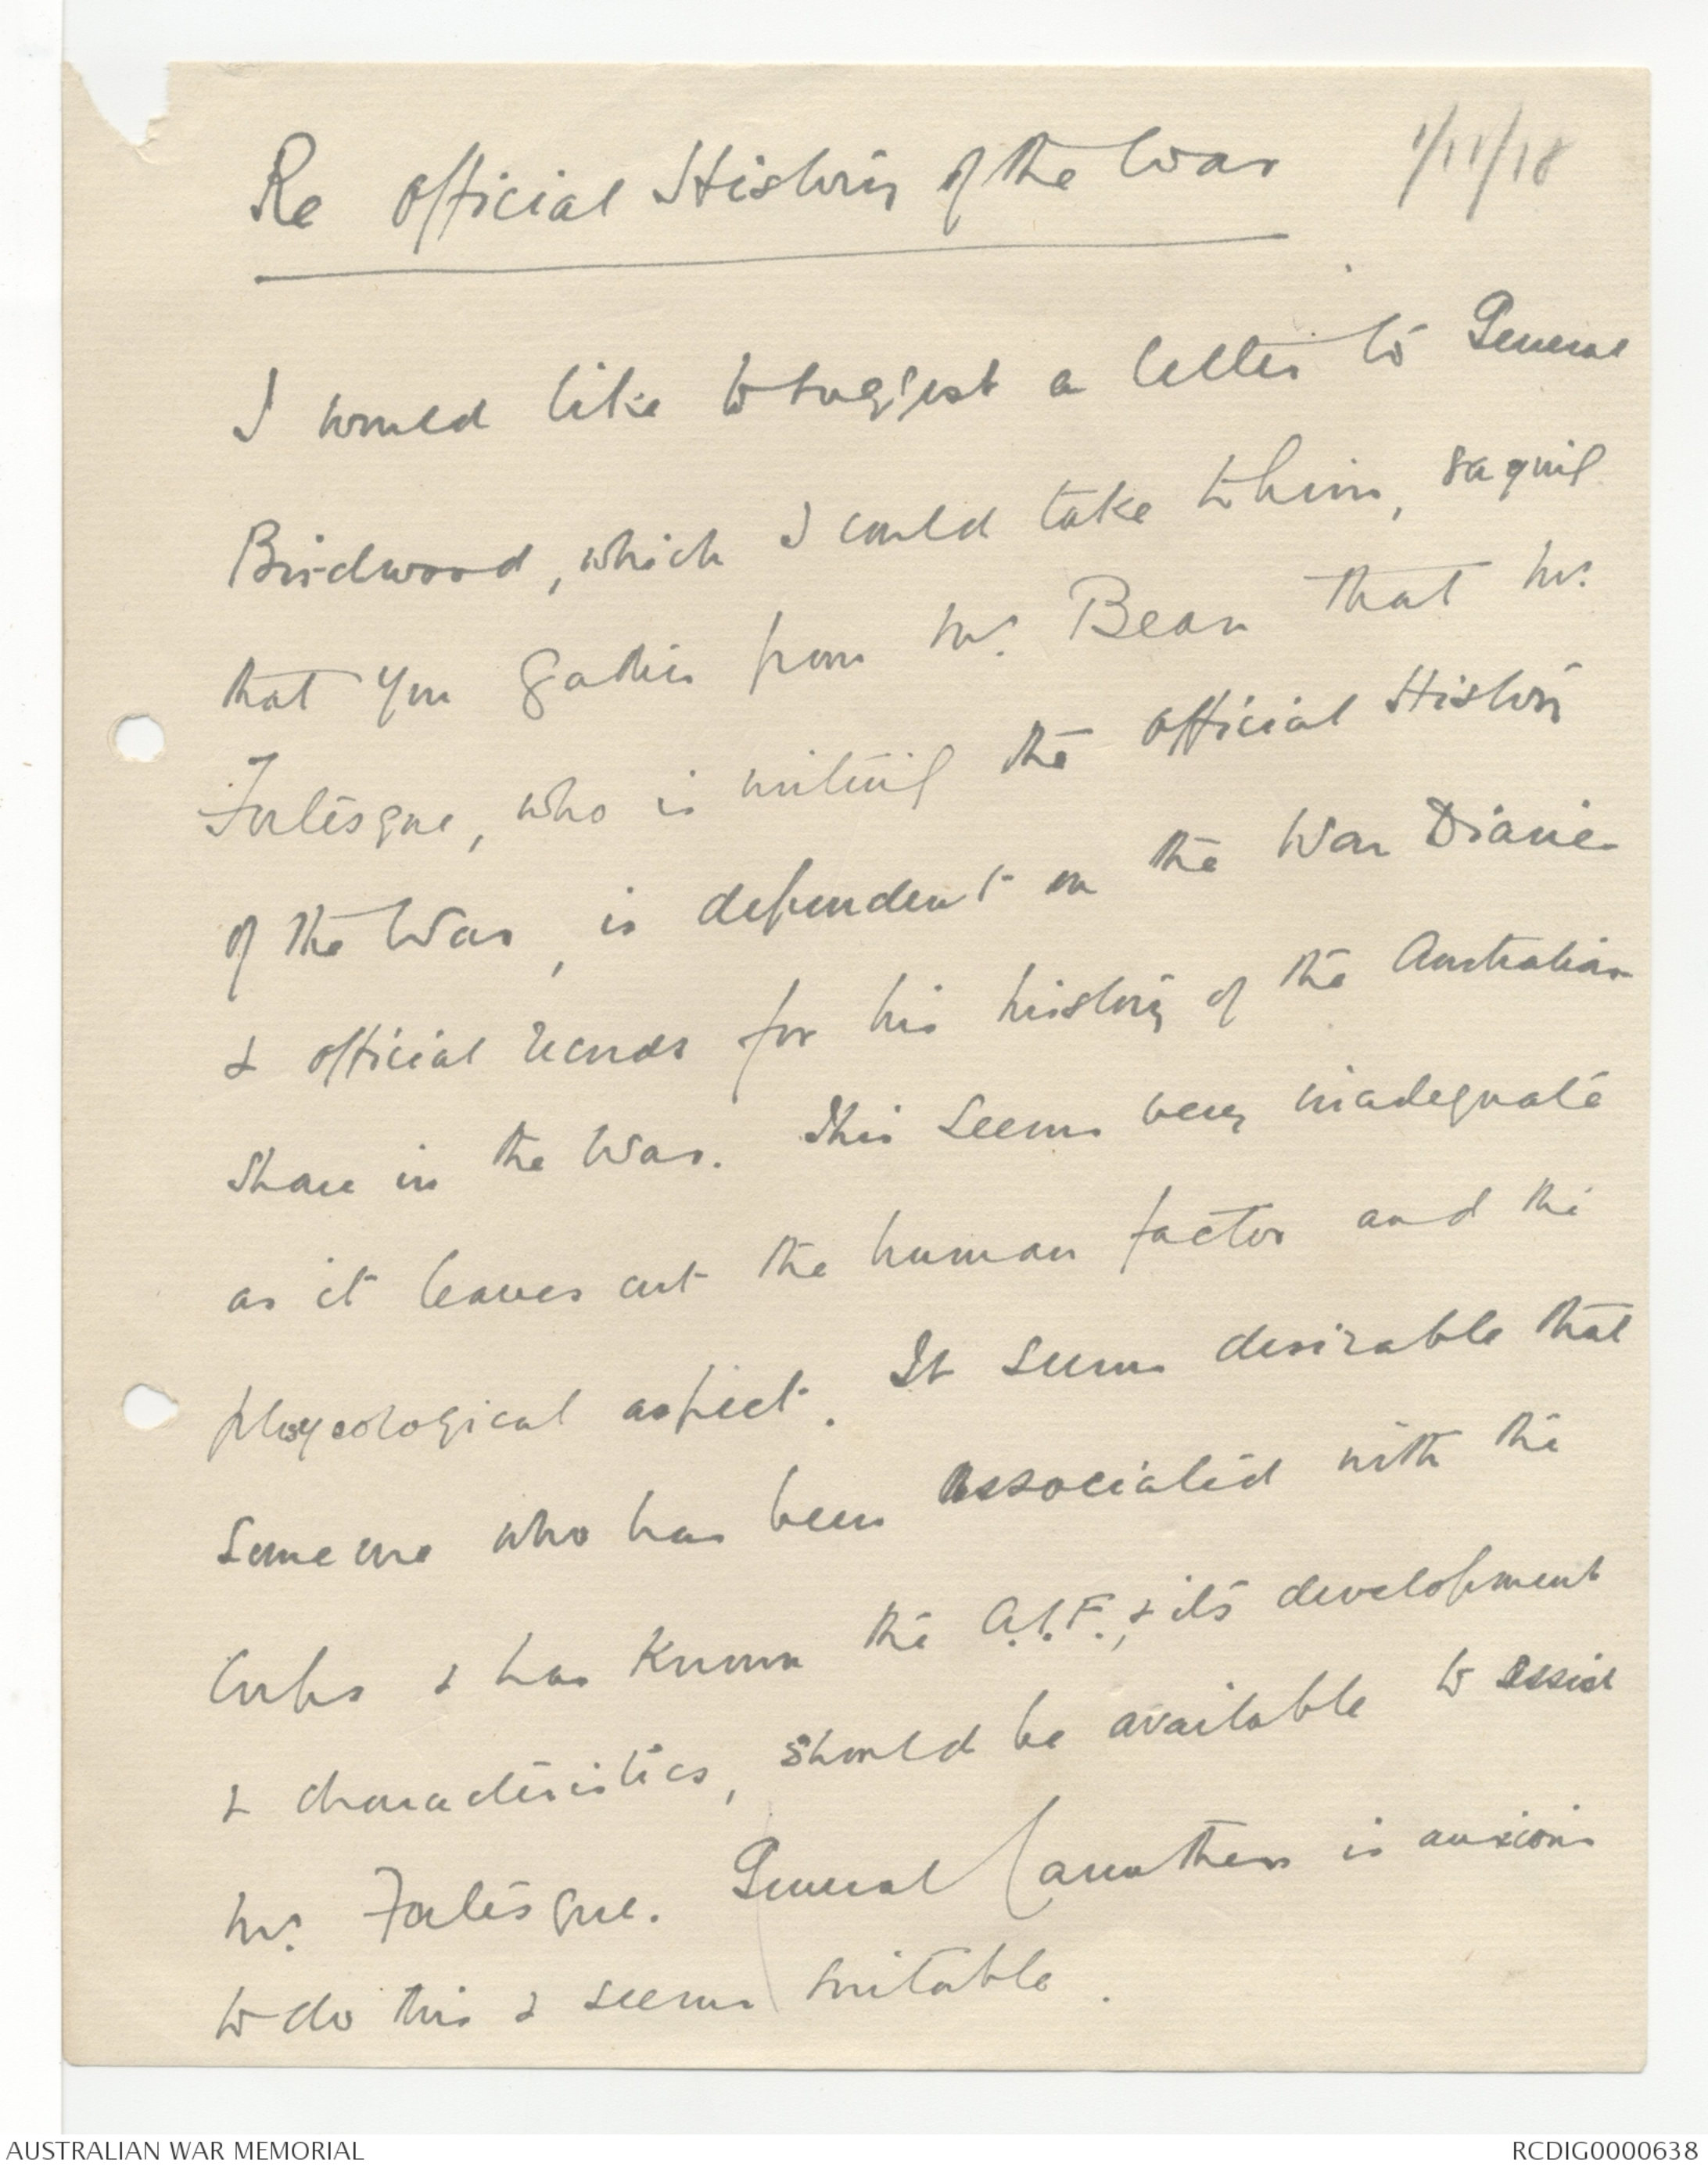 Re Official History of the War
1/11/18
I would like to suggest a letter to General
Birdwood, which I could take to him, saying
that you gather from Mr. Bean that Mr.
Fortesque, who is writing the Official History
of the War, is dependent on the War Diaries
& official records for his history of the Australian
share in the War. This seems very inadequate
as it leaves out the human factor and the
phsycological aspect. It seems desirable that
some one who has been associated with the
Corps & has known the A.I.F., & its development
& characteristics, should be available to assist
Mr. Fortesque. General Carruthers is anxious
to do this & seems suitable.
AUSTRALIAN WAR MEMORIAL
RCDIG0000638